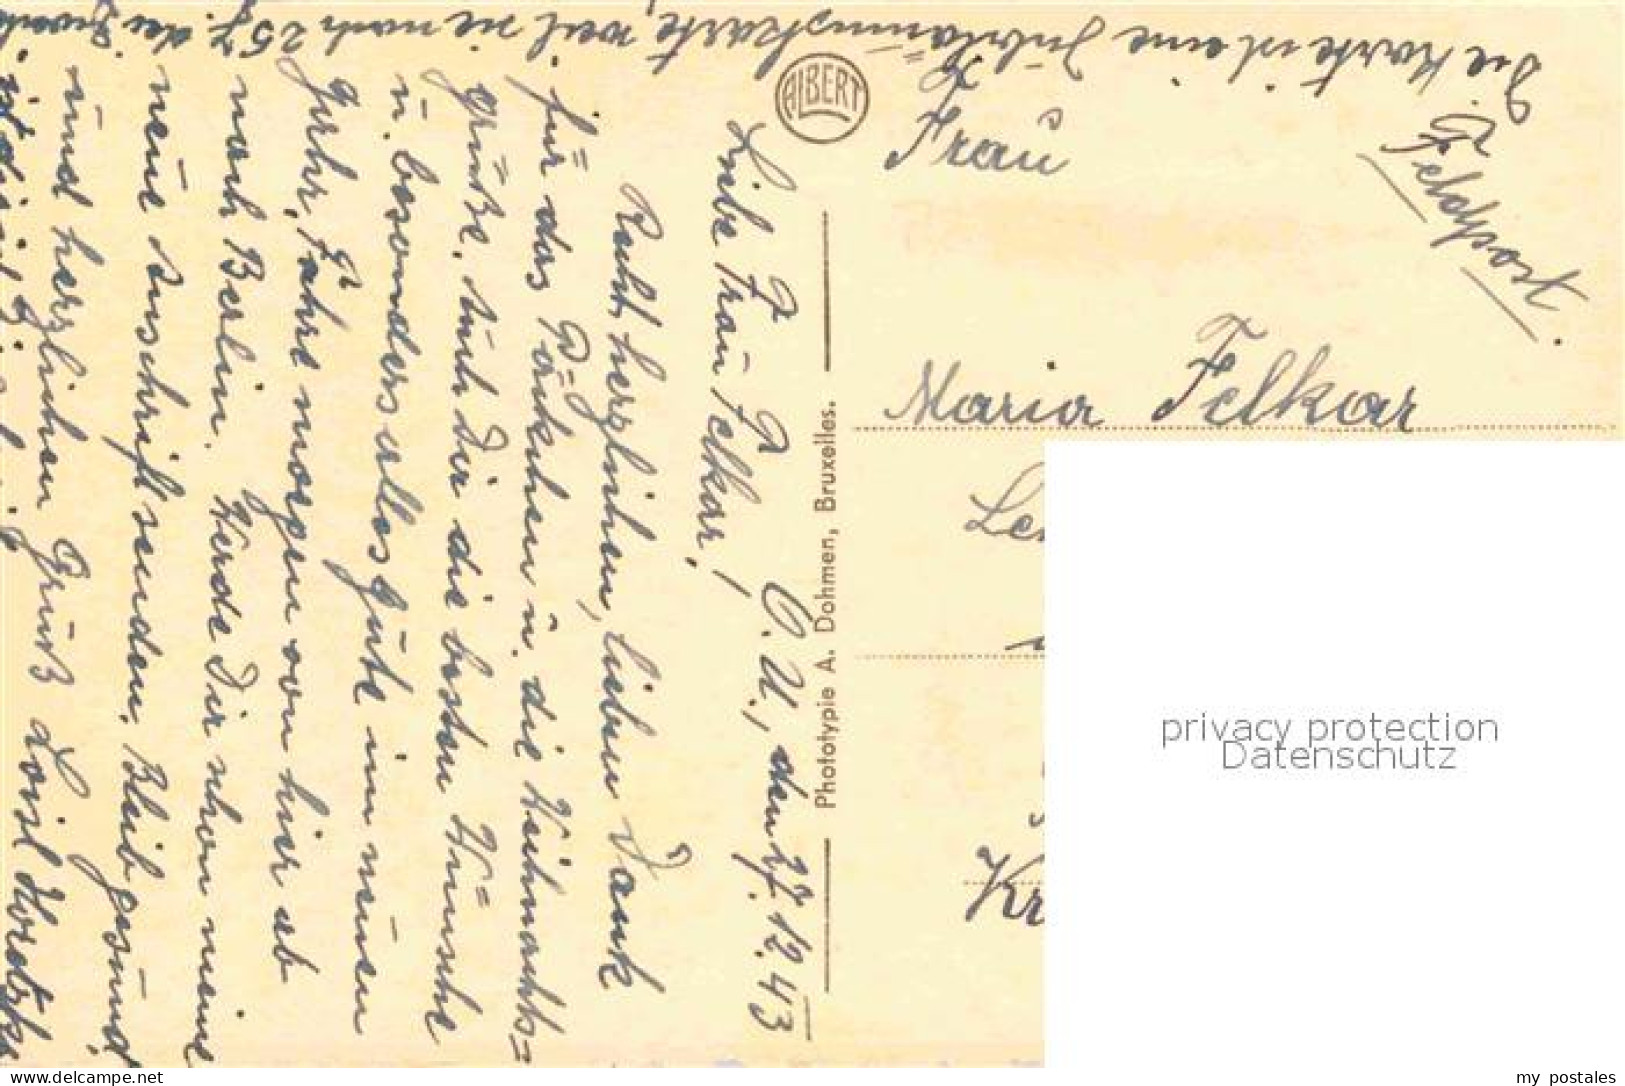 Die Karte ist eine Jubiläumskarte, weil sie nach 25 J. der Zweck
ALBERT
Feldpost.
Frau
Maria Felkar
Kr
Photototypie A. Dohmen, Bruxelles.
O. U., den 27. 12. 43
Liebe Frau Felkar!
Recht herzlichen, lieben Dank
für das Päckchen u. die Weihnachts=
grüße. Auch Dir die besten Wünsche
u. besonders alles Gute im neuen
Jahr. Fahre morgen von hier ab
nach Berlin. Werde Dir schon meine
neue Anschrift senden. Bleib gesund
und herzlichen Gruß
privacy protection
Datenschutz
my postales